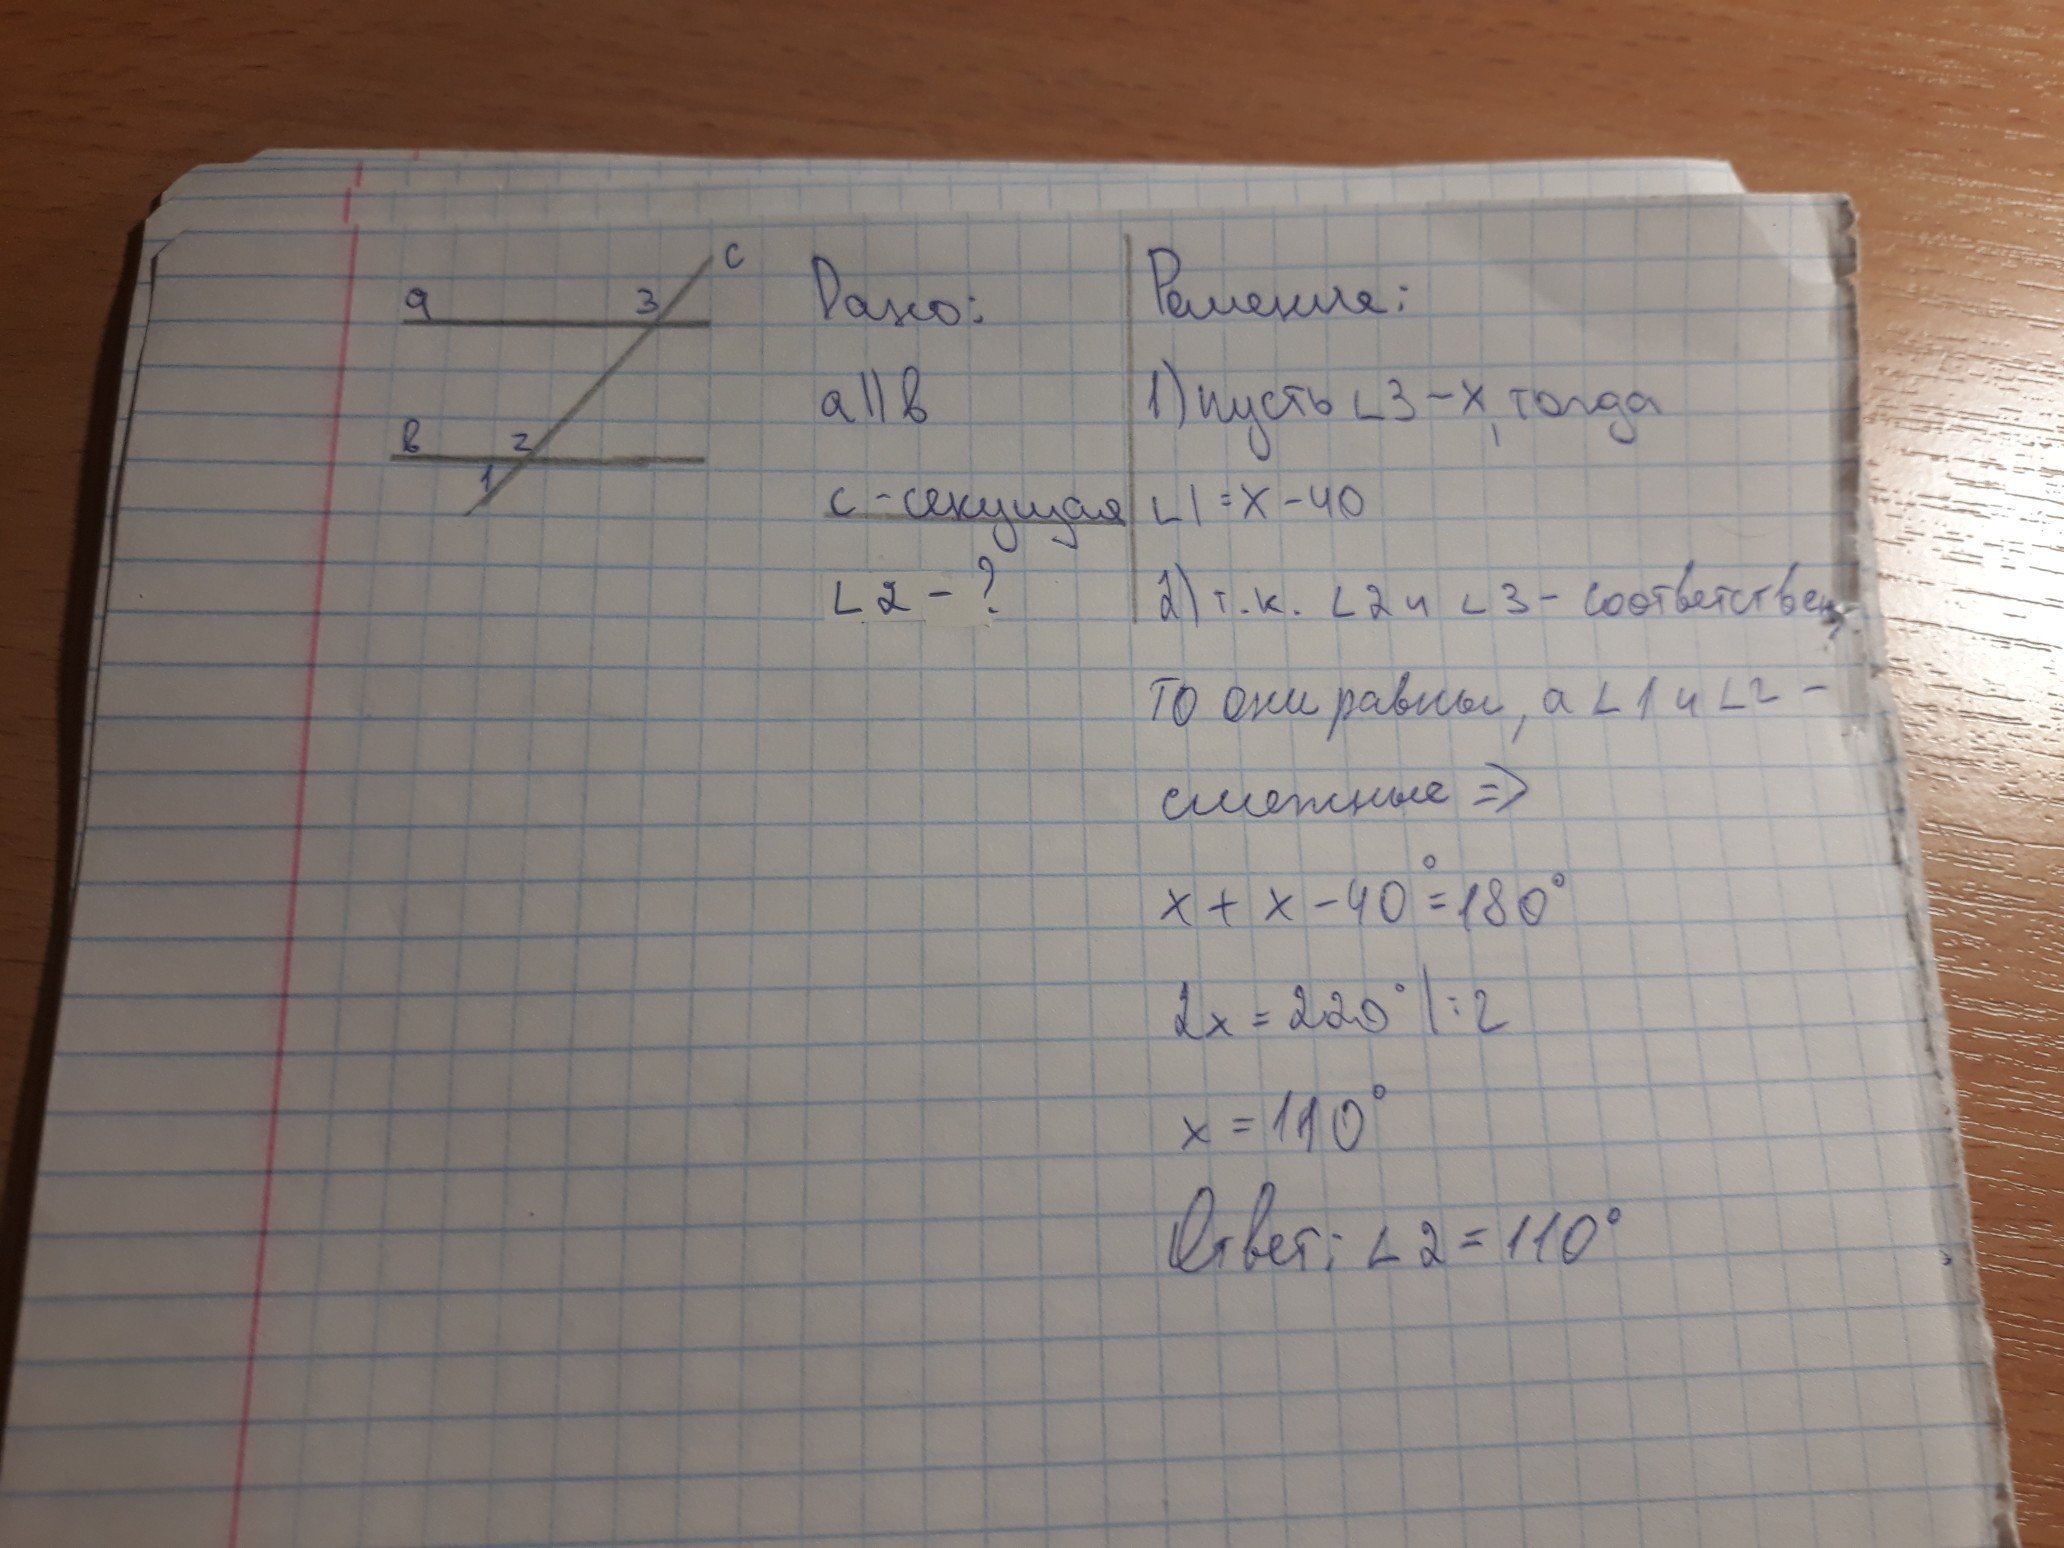 c
a 3
в 2
1
Дано:
a||в
c - секущая
∠2 - ?
Решение:
1) пусть ∠3 - x, тогда
∠1 = x - 40
2) т.к. ∠2 и ∠3 - соответствен
то они равны, а ∠1 и ∠2 -
смежные =>
x + x - 40° = 180°
2x = 220° |:2
x = 110°
Ответ: ∠2 = 110°